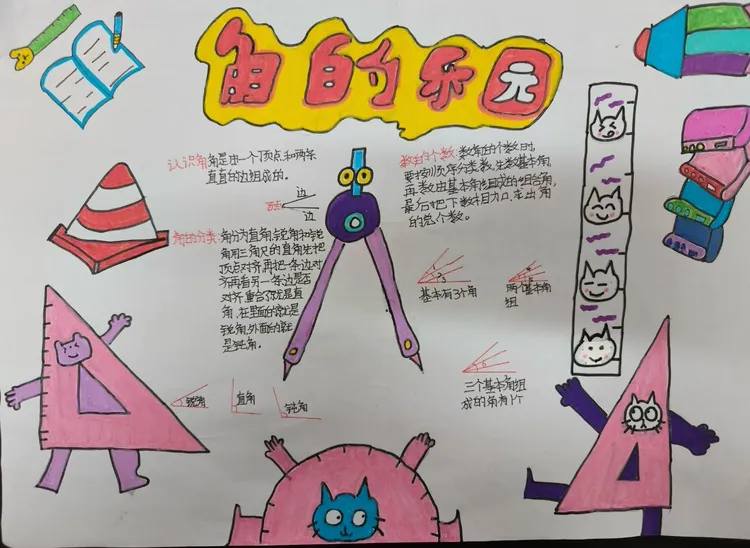 角的乐园
认识角 角是由一个顶点和两条
直直的边组成的。
顶点
边
边
角的分类: 角分为直角,锐角和钝
角用三角尺的直角先把
顶点对齐,再把一条边对
齐再看另一条边是否
对齐,重合了就是直
角,在里面的就是
锐角,外面的就
是钝角。
锐角
直角
钝角
数角的个数: 数角的个数时,
要按顺序分类数,先数基本角,
再数由基本角组成的组合角,
最后把个数相加,求出角
的总个数。
基本有3个角
两个基本角
组
三个基本角组
成的角有1个